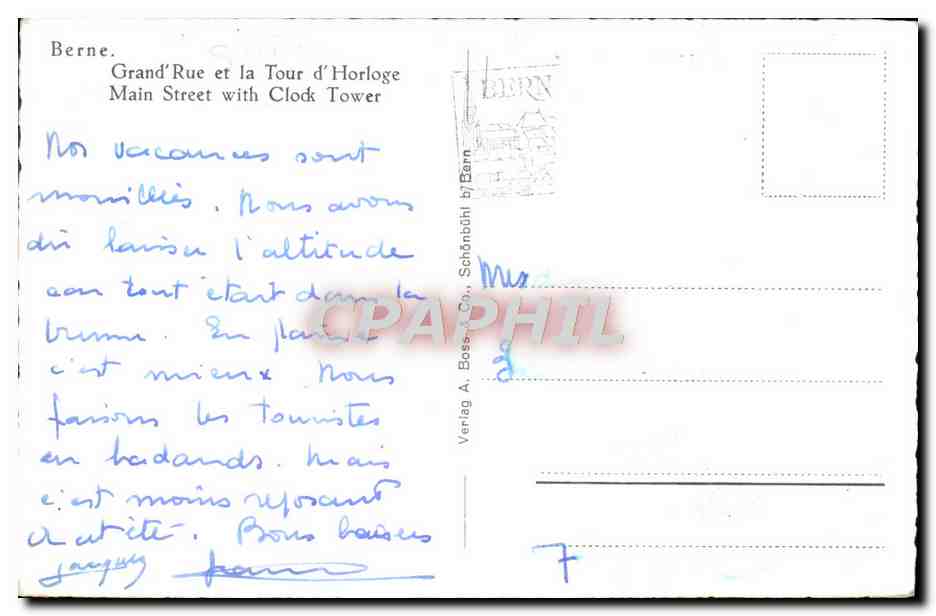 Berne.
Grand'Rue et la Tour d'Horloge
Main Street with Clock Tower
Nos vacances sont
mouillées. Nous avons
dû laisser l'altitude
car tout était dans la
brume. En plaine
c'est mieux. Nous
faisons les touristes
en badauds. Mais
c'est moins reposant
et est été. Bons baisers
Jacques
Verlag A. Boss & Co., Schönbühl b/Bern
BERN
CPAPHIL
7